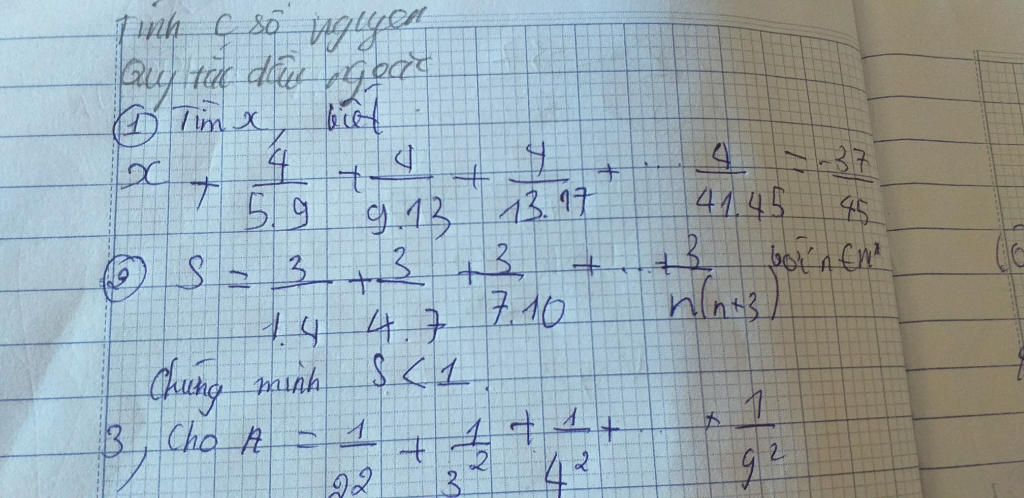 Tính c số nguyen
Quy tắc dấu ngoặc
① Tìm x, biết
x + 4/5.9 + 4/9.13 + 4/13.17 + ... 4/41.45 = -37/45
② S = 3/1.4 + 3/4.7 + 3/7.10 + ... + 3/n(n+3) với n ∈ N*
Chứng minh S < 1.
3, Cho A = 1/2² + 1/3² + 1/4² + ... + 1/9²